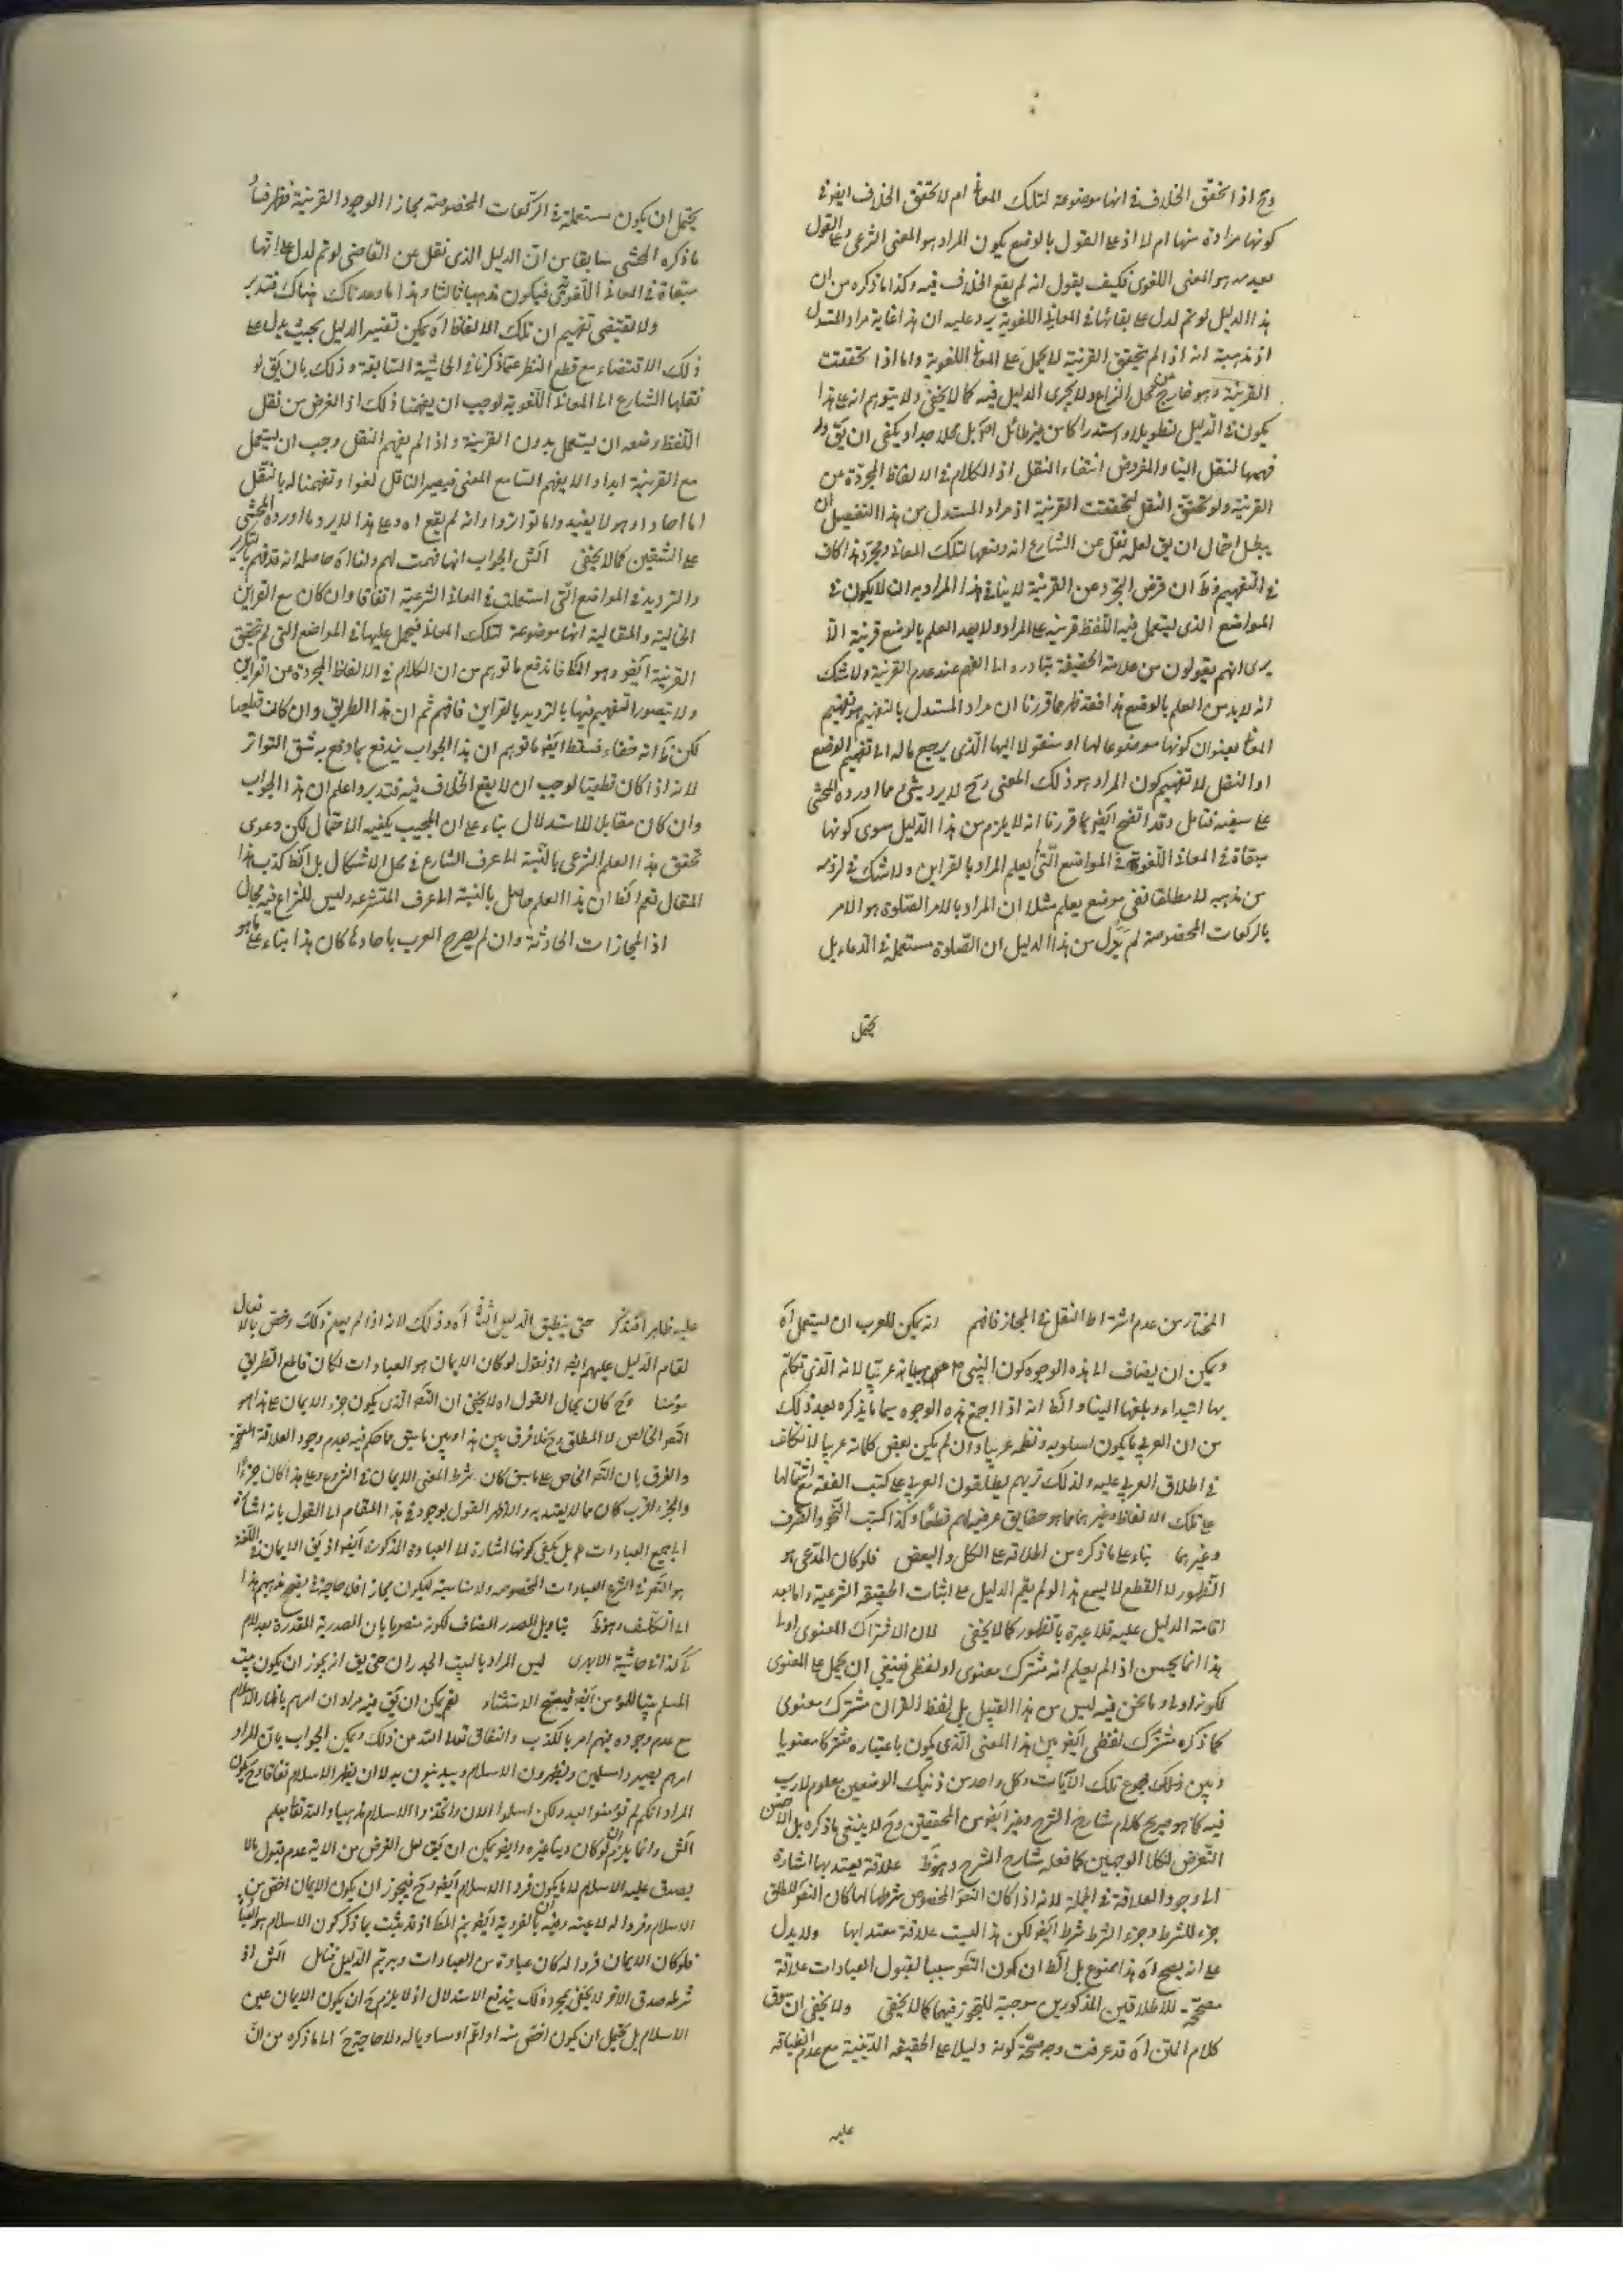 وح اذ الحقق الخلاف في انها موضوعة لتلك المعا ام لا تحقق الخلاف ايضو في
كونها مرادة منها ام لا اذ على القول بالوضع يكون المراد هو المعنى الشرعى وعلى القول
بعدمه هو المعنى اللغوى فكيف يقول انه لم يقع الخلاف فيه وكذا ما ذكره من ان
هذا الدليل لو تم لدل على بقائها في المعاني اللغوية يرد عليه ان هذا غاية مراد المستدل
اذ مذهبه انه اذا لم يتحقق القرنية لا يحمل على المعا اللغوية واما اذا تحققت
القرنية وهو خارج عن محل النزاع ولا يجرى الدليل فيه كما لا يخفى ولا يتوهم انه على هذا
يكون في الدليل تطويلا واستدراكا من غير طائل اصلا بل محلا جدا ويكفى ان يق ولو
فهمها لنقل الينا والمفروض انتفاء النقل اذ الكلام في الالفاظ المجردة عن
القرنية ولو تحقق النقل لتحققت القرنية اذ مراد المستدل من هذا التفصيل ان
يبطل احتمال ان يق لعله نقل عن الشارع انه وضعها لتلك المعاني ومجرد هذا كاف
في التفهيم وظ ان فرض التجرد عن القرنية لا ينافي هذا المراد به ان لا يكون في
المواضع الذى يستعمل فيه اللفظ قرنية على المراد ولا يعد العلم بالوضع قرنية الا
يرى انهم يقولون من علامة الحقيقة تبادره الى الفهم عند عدم القرنية ولا شك
انه لا بد من العلم بالوضع هذا فقد ظهر مما قررنا ان مراد المستدل بالتفهيم هو تفهيم
المعا بعنوان كونها موضوعا لها او منقولا اليها الذى يرجع ماله الى تفهيم الوضع
او النقل لا تفهيم كون المراد هو ذلك المعنى وح لا يرد شئ مما اورده المحشى
على سيفه فتامل وقد اتضح ايضو بما قررنا انه لا يلزم من هذا الدليل سوى كونها
مبقاة في المعاني اللغوية في المواضع التى لم يعلم المراد بالقراين ولا شك في لزومه
من مذهبه لا مطلقا ففى موضع يعلم مثلا ان المراد بالامر الصلوة هو الامر
بالركعات المخصوصة لم يدل من هذا الدليل ان الصلوة مستعملة في الدعاء بل
يحتمل
يحتمل ان يكون مستعملة في الركعات المخصوصة مجازا الوجود القرنية فظهر فساد
ما ذكره المحشى سابقا من ان الدليل الذى نقل عن القاضى لو تم لدل على انها
مبقاة في المعاني اللغوية فيكون مذهبا ثالثا وهذا ما وعدناك هناك فتدبر
ولا تقتضى تفهيم ان تلك الالفاظ اه يمكن تفسير الدليل بحيث يدل على
ذلك الاقتضاء مع قطع النظر عما ذكرنا في الحاشية السابقة وذلك بان يق لو
نقلها الشارع الى المعاني اللغوية لوجب ان يفهمنا ذلك اذ الغرض من نقل
اللفظ وضعه ان يستعمل بدون القرنية واذا لم يفهم النقل وجب ان يستعمل
مع القرنية ابدا والا يفهم السامع المعنى فيصير النقل لغوا وتفهيمنا له بالنقل
اما احادا وهو لا يفيد واما تواترا وانه لم يقع اه وعلى هذا لا يرد ما اورده المحشى
على الشقين كما لا يخفى الش الجواب انها فهمت لهم ولنا اه حاصله انه قد فهم بالتكرار
والترديد في المواضع التى استعملت في المعاني الشرعية اتفاقا وان كان مع القراين
الحالية والمقالية انها موضوعة لتلك المعاني فيحمل عليها في المواضع التى لم يتحقق
القرنية ايضو وهو المط فاندفع ما توهم من ان الكلام في الالفاظ المجردة عن القراين
ولا يتصور التفهيم فيها بالترديد بالقراين فافهم ثم ان هذا الطريق وان كان قطعيا
لكن لما انه خفاء فسقط ايضو ما توهم ان هذا الجواب يندفع بما دفع به شق التواتر
لانه اذا كان قطعيا لوجب ان لا يقع الخلاف فيه فتدبر واعلم ان هذا الجواب
وان كان مقابلا للاستدلال بناء على ان المجيب يكفيه الاحتمال لكن دعوى
تحقق هذا العلم الشرعى بالنسبة الى عرف الشارع في محل الاشكال بل الظ كذب هذا
المقال نعم الظ ان هذا العلم حاصل بالنسبة الى عرف المتشرعه وليس للنزاع فيه مجال
اذ المجازات الحادثة وان لم يصرح العرب باحادها كان هذا بناء على ما هو
المختار من عدم اشتراط النقل في المجاز فافهم انه يمكن للعرب ان يستعمل اه
ويمكن ان يضاف الى هذه الوجوه كون النبى صلعم عربيا لانه الذى تكلم
بها ابتداء وبلغها الينا والظ انه اذا اجتمع هذه الوجوه سيما ما يذكره بعد ذلك
من ان العربى ما يكون اسلوبه ونظمه عربيا وان لم يكن بعض كلماته عربيا لا تكلف
في اطلاق العربى عليه ولذلك تريهم يطلقون العربى على كتب الفقه مع اشتمالها
على تلك الالفاظ وغيرها مما هو حقايق عرفية لهم قطعا وكذا كتب النحو والصرف
وغيرهما بناء على ما ذكره من اطلاقه على الكل والبعض فلو كان المدعى هو
الظهور لا القطع لا يسمع هذا لو لم يقم الدليل على اثبات الحقيقة الشرعية واما بعد
اقامة الدليل عليه فلا عبرة بالظهور كما لا يخفى لان الاشتراك المعنوى اولى
هذا انما يحسن اذا لم يعلم انه مشترك معنوى او لفظى فينبغى ان يحمل على المعنوى
لكونه اولى وما نحن فيه ليس من هذا القبيل بل لفظ القران مشترك معنوى
كما ذكره مشترك لفظى ايضو بين هذا المعنى الذى يكون باعتباره مشتركا معنويا
وبين ذلك مجموع تلك الآيات وكل واحد من ذينك الوضعين معلوم لا ريب
فيه كما هو صريح كلام شارح الشرح وغيره ايضو من المحققين وح لا ينبغى ما ذكره بل الاحسن
التعرض لكلا الوجهين كما فعله شارح الشرح وهو ظ علاقة يعتد بها اشارة
الى وجود العلاقة في الجملة لانه اذا كان التصو المخصوص شرطا لها كان التصو المطلق
جزء للشرط وجزء الشرط شرط ايضو لكن هذا ليست علاقة معتدا بها ولا يدل
على انه يصح اه هذا ممنوع بل الظ ان كون التصو سببا لقبول العبادات علاقة
مصححة للاطلاقين المذكورين موجبة للتجوز فيهما كما لا يخفى ولا يخفى ان سوق
كلام المتن اه قد عرفت وجه صحة كونه دليلا على الحقيقة الدينية مع عدم انطباقه
عليه
عليه ظاهرا فتذكر حتى ينطبق الدليل الثانى اه وذلك لانه اذا لم يعلم ذلك وخص بالافعال
لقام الدليل عليهم ايضو اذ نقول لو كان الايمان هو العبادات لكان قاطع الطريق
مؤمنا وح كان مجال القول اه لا يخفى ان التصو الذى يكون جزء الايمان على هذا هو
التصو الخالص لا المطلق وح فلا فرق بين هذا وبين ما سبق مما حكم فيه بعدم وجود العلاقة المصححة
والفرق بان التصو الخاص على ما سبق كان شرط المعنى الايمان في الشرع وعلى هذا كان جزءا
والجزء اقرب كان مما لا يعتد به والاظهر القول بوجود في هذا المقام الى القول بانه اشارة
الى جميع العبادات بل يكفى كونها اشارة الى العبادة المذكورة ايضو اذ يق الايمان في اللغة
هو التصو في الشرع العبادات المخصوصه ولا مناسبة ليكون مجازا فلا حاجة في تصحيح مذهبهم هذا
الى التكلف وهو ظ بتاويل المصدر المضاف لكونه منصوبا بان المصدرية المقدرة بعد لام
كي كذا في حاشية الابهرى ليس المراد بالبيت الجدران حتى يق انه يجوز ان يكون بيت
المسلم بيتا للمؤمن ايضو فيصح الاستثناء نعم يمكن ان يق فيه مراد ان امرهم باظهار الاسلام
مع عدم وجوده فيهم امر بالكذب والنفاق تعالى الله من ذلك ويمكن الجواب بان المراد
امرهم بصيروا مسلمين ويظهرون الاسلام ويدينون به لا ان يظهر الاسلام نفاقا وح يكون
المراد انكم لم تؤمنوا بعد ولكن اسلموا الان واتخذوا الاسلام مذهبا والله تعا يعلم
الش وانما يلزم لو كان دينا غيره وايضو يمكن ان يق لعل الغرض من الاية عدم قبول ما لا
يصدق عليه الاسلام لا ما يكون فردا الاسلام ايضو وح فيجوز ان يكون الايمان اخص من
الاسلام وفردا له لا عينه وفيه ان الفردية ايضو يتم المط اذ قد يثبت بما ذكر كون الاسلام هو العبا
فلو كان الايمان فردا له كان عبادة من العبادات وبه يتم الدليل فتامل الش اذ
شرطه صدق الاخر لا يخفى بمجرد ذلك يندفع الاستدلال اذ لا يلزم ح ان يكون الايمان عين
الاسلام بل يحتمل ان يكون اخص منه او اعم او مساويا له ولا حاجة ح الى ما ذكره من ان